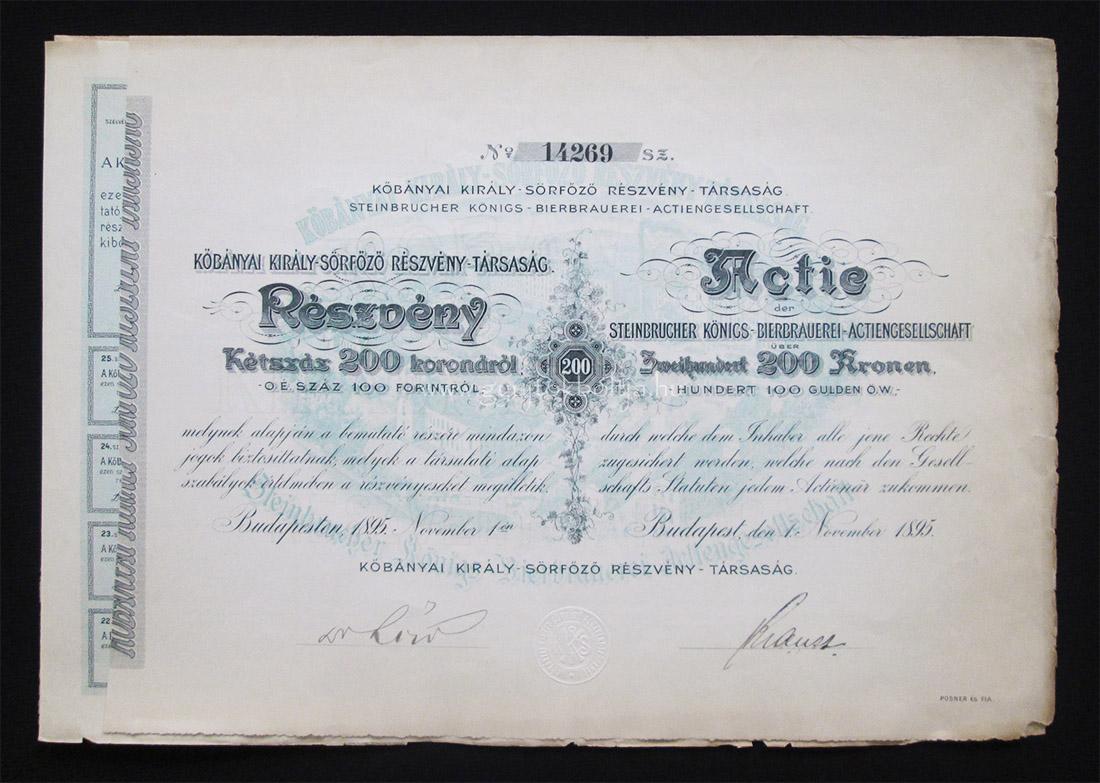 Nọ 14269 SZ.
KŐBÁNYAI KIRÁLY-SÖRFŐZŐ RÉSZVÉNY-TÁRSASÁG.
STEINBRUCHER KÖNIGS-BIERBRAUEREI-ACTIENGESELLSCHAFT.
KŐBÁNYAI KIRÁLY-SÖRFŐZŐ RÉSZVÉNY-TÁRSASÁG.
Részvény
Kétszáz 200 koronáról
O.É. SZÁZ 100 FORINTRÓL
melynek alapján a bemutató részére mindazon
jogok biztosíttatnak, melyek a társulati alap
szabályok értelmében a részvényeseket megilletik.
Budapesten, 1895. November 1én
200
Actie
der
STEINBRUCHER KÖNIGS-BIERBRAUEREI-ACTIENGESELLSCHAFT
ÜBER
Zweihundert 200 Kronen.
HUNDERT 100 GULDEN Ö.W.
durch welche dem Inhaber alle jene Rechte
zugesichert werden, welche nach den Gesell
schafts Statuten jedem Actionär zukommen.
Budapest, den 1. November 1895.
KŐBÁNYAI KIRÁLY-SÖRFŐZŐ RÉSZVÉNY-TÁRSASÁG.
Krausz
POSNER ÉS FIA.
A K
eze
tató
rész
kibo
25.
A Kő
ezen
24. sz
A Kőb
ezen
23.
A Kő
ezen
22